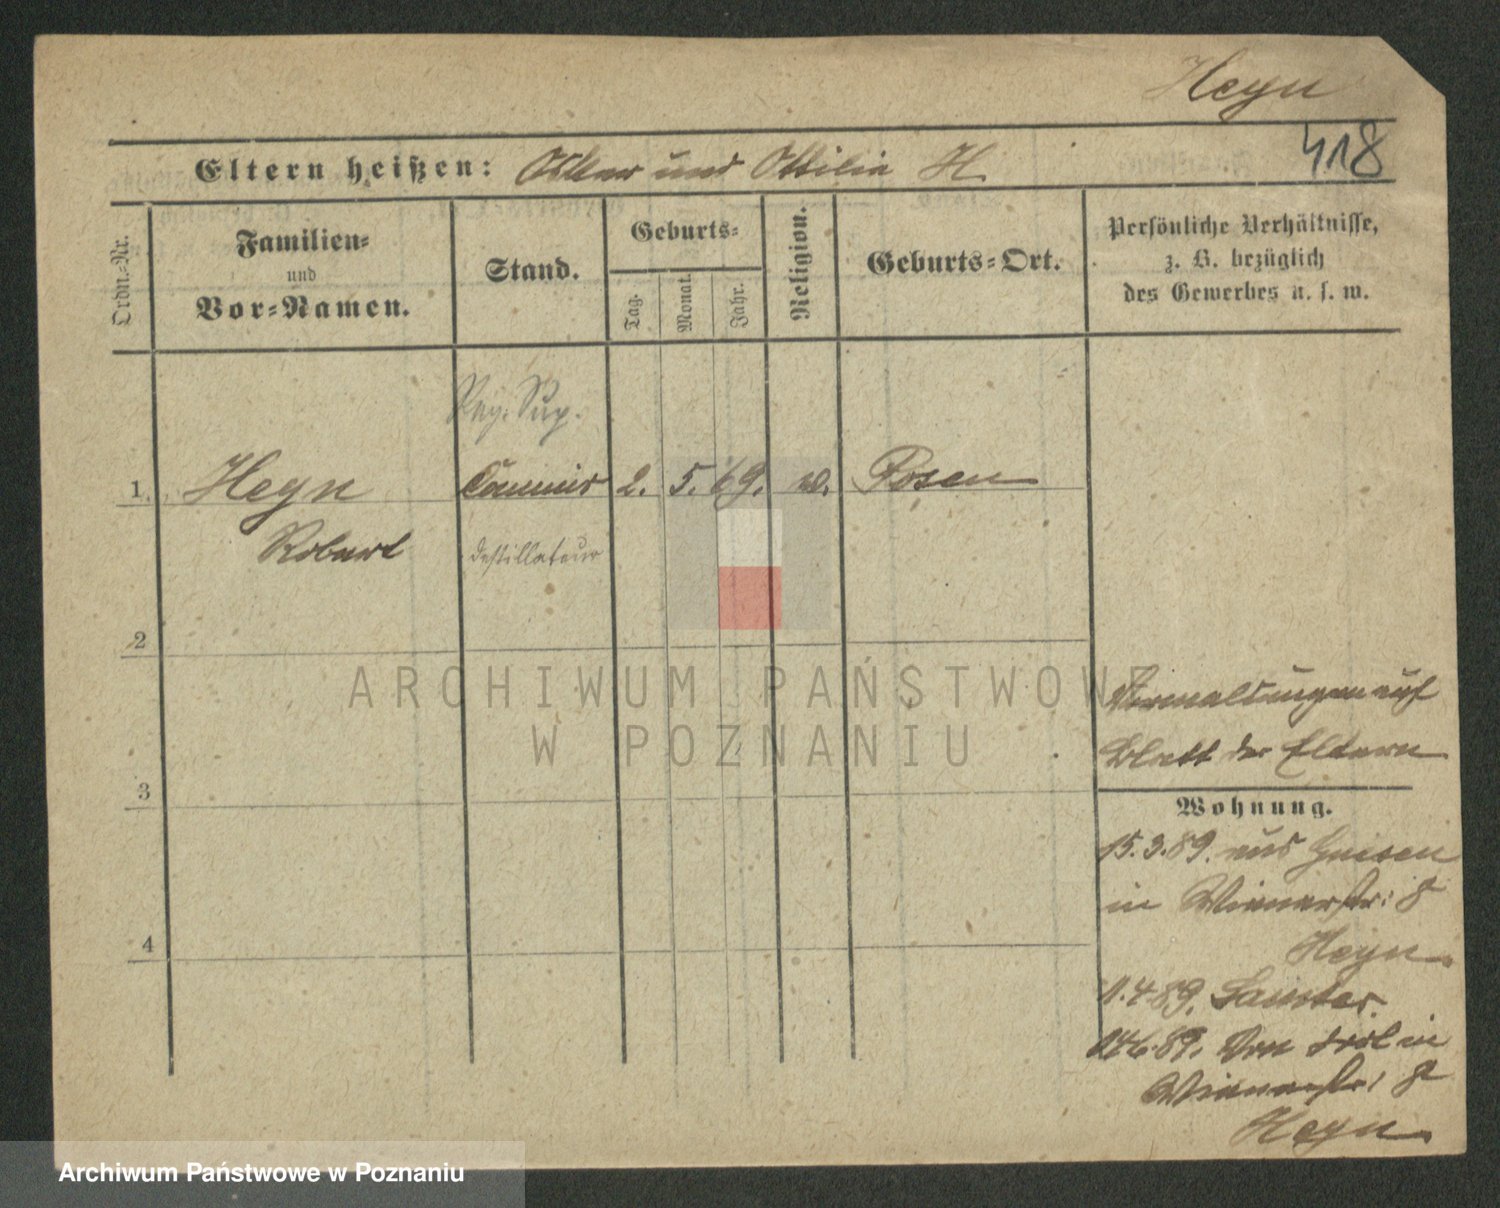 Heyn
418
Eltern heißen: Oskar und Ottilie H.
Ordn.-Nr.
Familien-
und
Vor-Namen.
Stand.
Geburts-
Tag.
Monat.
Jahr.
Religion.
Geburts-Ort.
Persönliche Verhältnisse,
z. B. bezüglich
des Gewerbes u. s. w.
Reg. Sup.
1. Heyn Commis 2. 5. 69. Posen
Robert destillateur
2
3
4
ARCHIWUM PAŃSTWOWE
W POZNANIU
Vermeldungen auf
Blatt der Eltern
Wohnung.
15.3.89. aus Gnesen
in Wienerstr: 8
Heyn.
1.4.89. Samter.
14.6.89. Von dort in
Wienerstr: 8
Heyn.
Archiwum Państwowe w Poznaniu